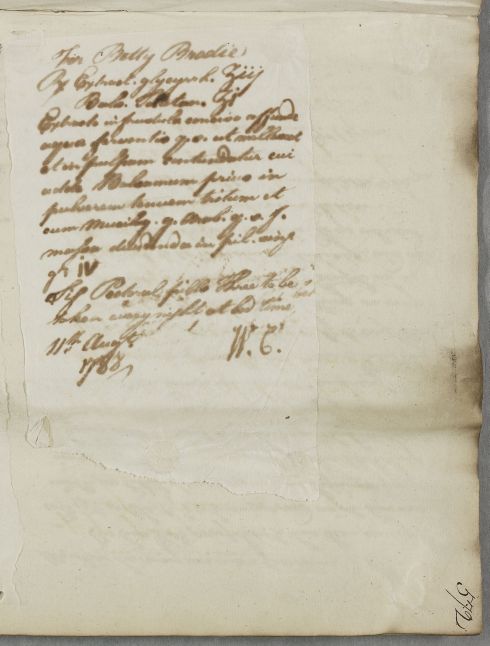 For Betty Brodie
℞ Extract. glycyrrh. ʒiij
Bals. Tolutan. ʒi
Extracto in frustula conciso affunde
aqua ferventis q. s. ut mollescat
et in pulpam contundatur cui
adde Balsamum prius in
pulverem tenuem tritum et
cum Mucilag. g. Arab. q. s. f.
massa dividenda in pil. sing.
gr. IV
Sig. Pectoral pills three to be
taken every night at bed time
11th August
1783
W. C.
572